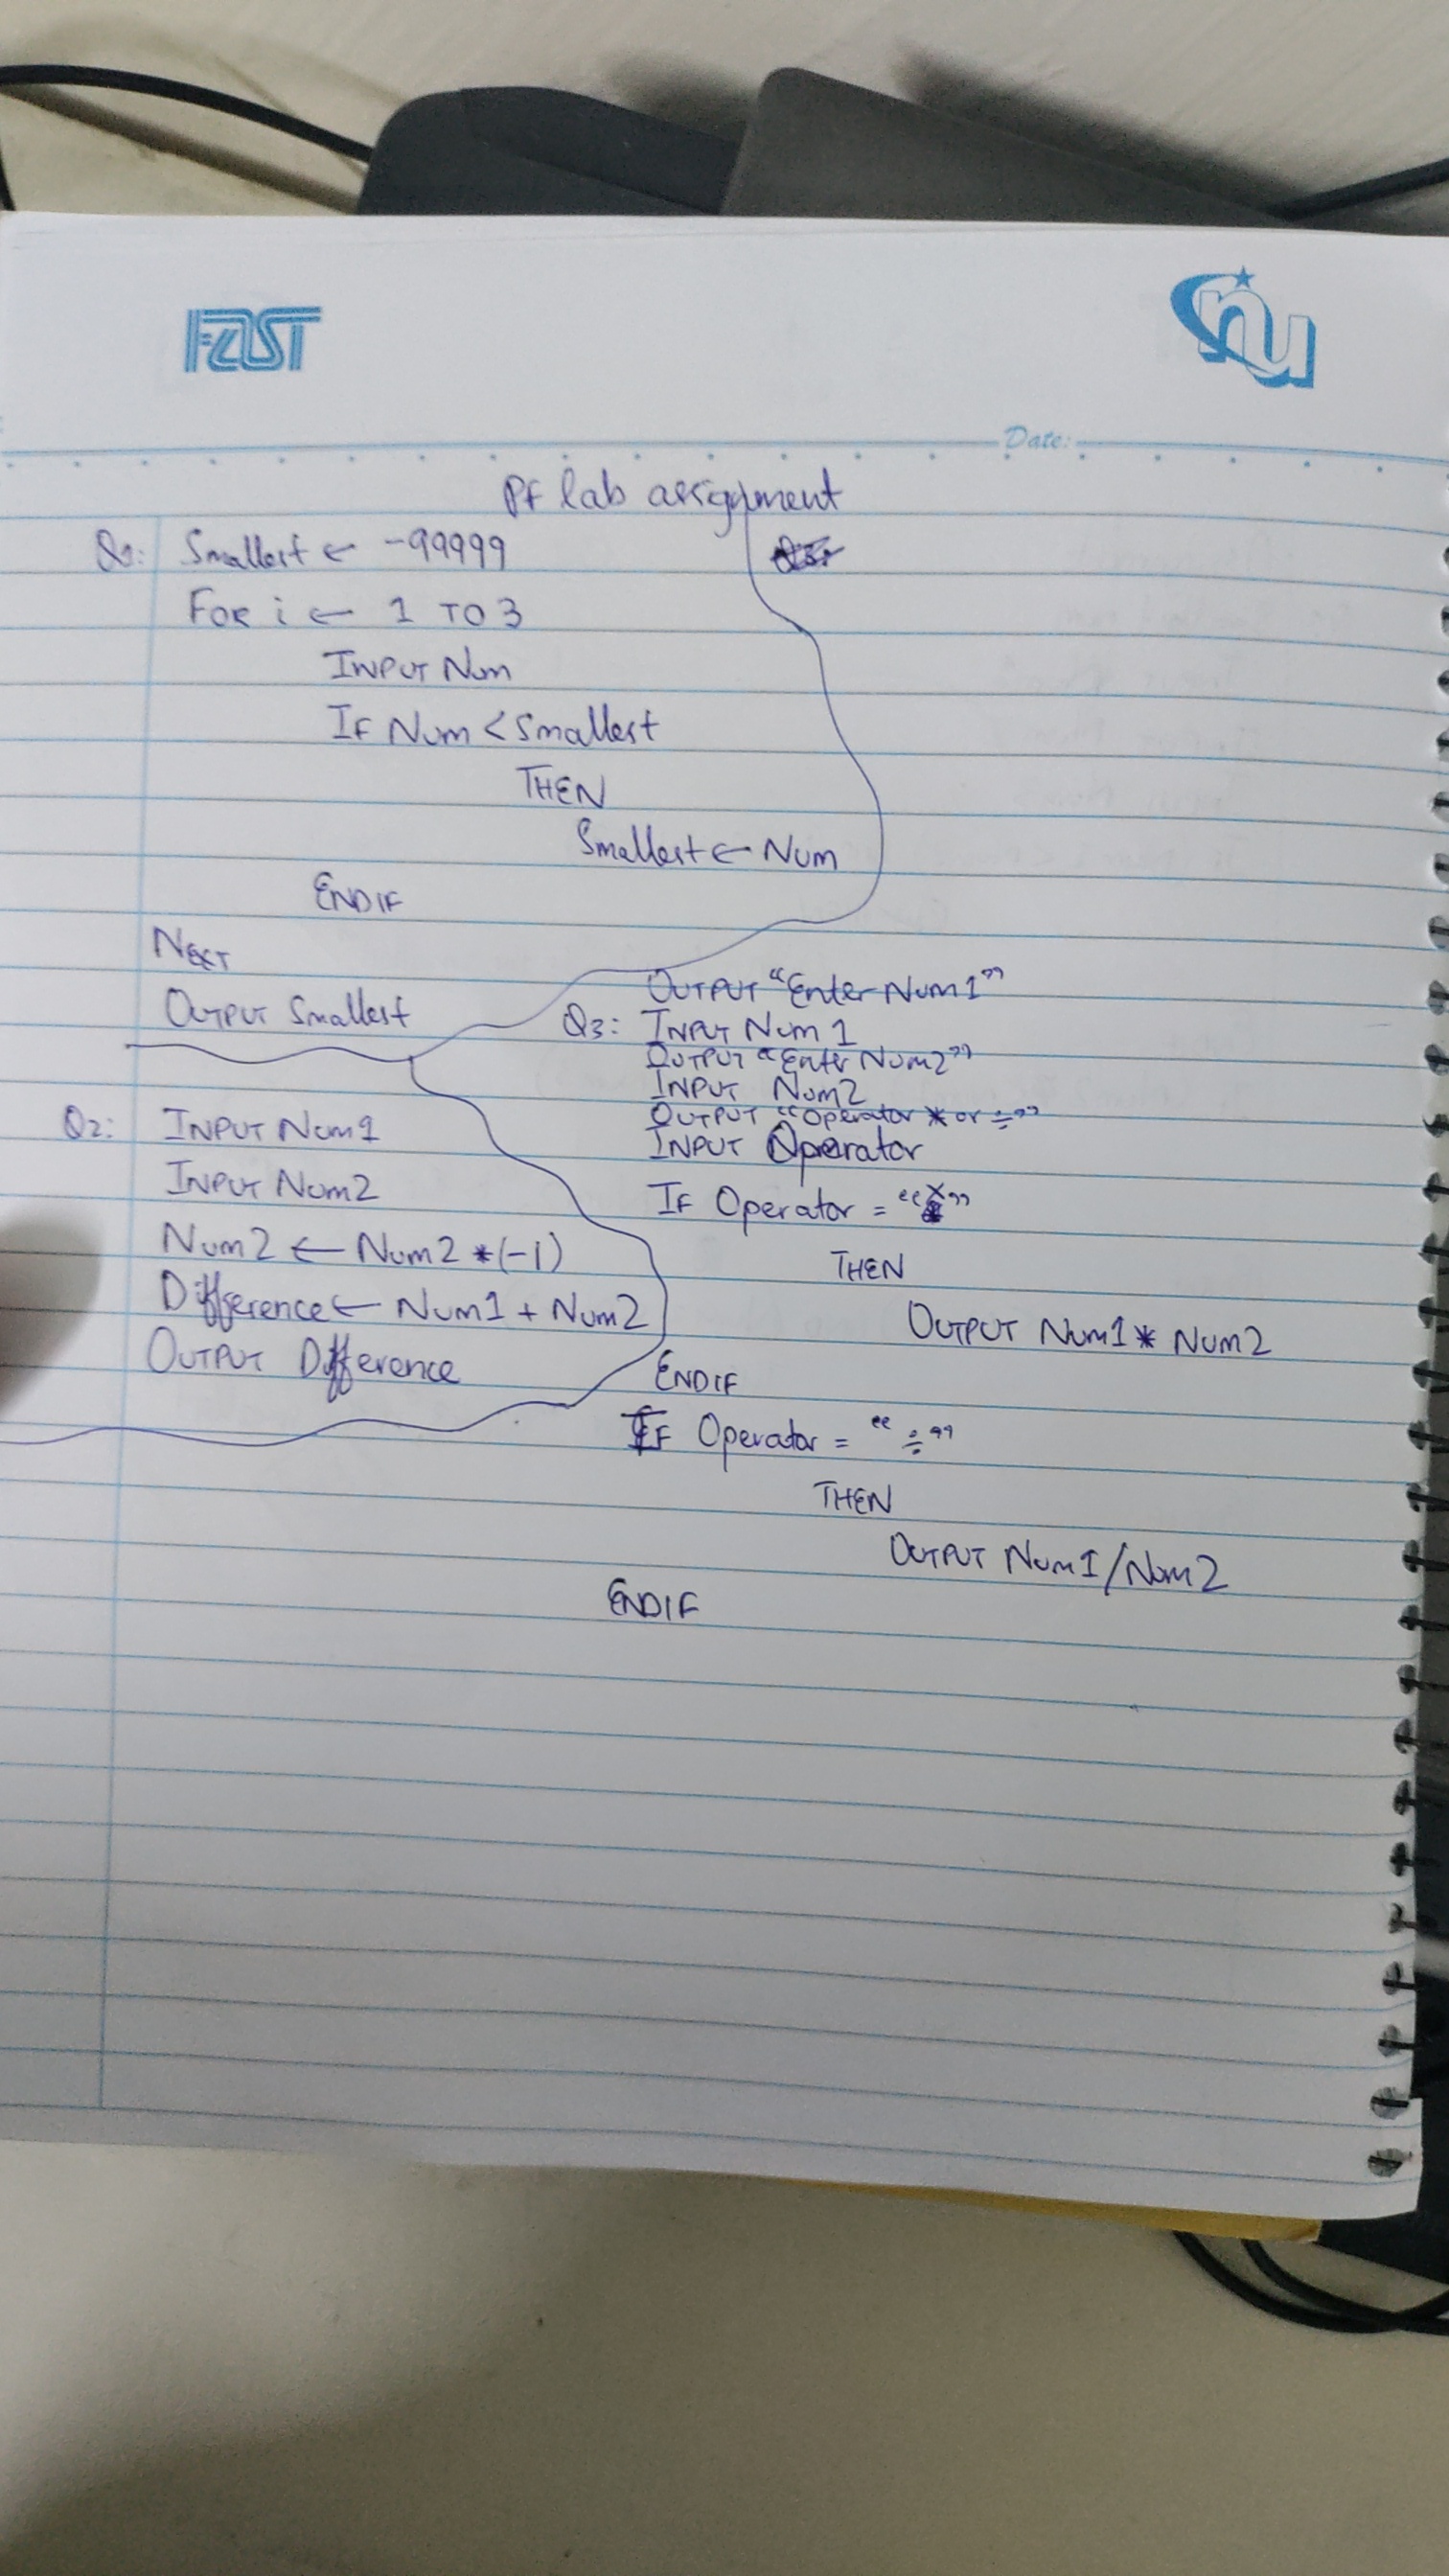 FAST
nu
Date:
PF lab assignment
Q1: Smallest ← -99999
FOR i ← 1 TO 3
INPUT Num
IF Num < Smallest
THEN
Smallest ← Num
ENDIF
NEXT
OUTPUT Smallest
Q2: INPUT Num1
INPUT Num2
Num2 ← Num2 * (-1)
Difference ← Num1 + Num2
OUTPUT Difference
OUTPUT “Enter Num1”
Q3: INPUT Num1
OUTPUT “Enter Num2”
INPUT Num2
OUTPUT “Operator * or ÷”
INPUT Operator
IF Operator = “×”
THEN
OUTPUT Num1 * Num2
ENDIF
IF Operator = “÷”
THEN
OUTPUT Num1/Num2
ENDIF